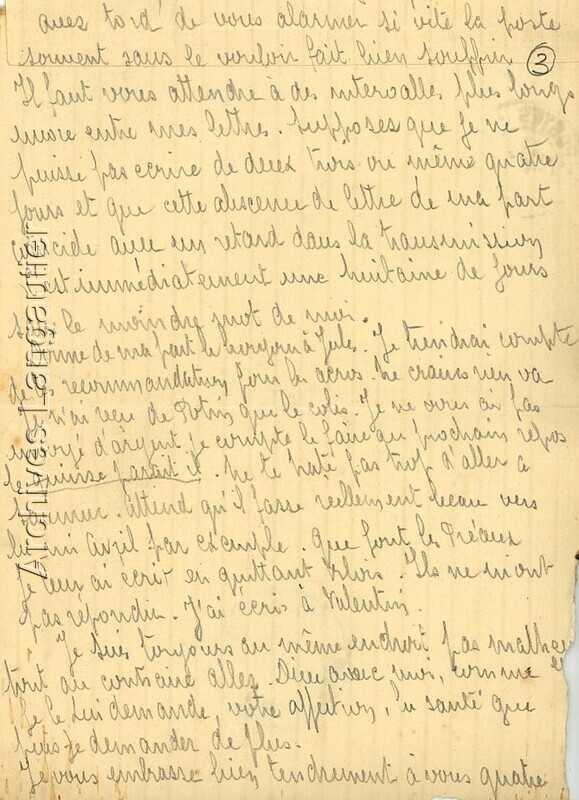 avez tord de vous alarmer si vite la poste
souvent sans le vouloir fait bien souffrir
3
Il faut vous attendre à des intervalles plus longs
encore entre mes lettres. Supposes que je ne
puisse pas ecrire de deux trois ou même quatre
jours et que cette abscence de lettre de ma part
coïcide avec un retard dans la transmission
est immédiatement une huitaine de jours
le moindre mot de moi.
de ma part le bonjour à Jules. Je tiendrai compte
de recommandation pour les acros. Ne crains rien va
n'ai recu de Potin que le colis. Je ne vous ai pas
envoyé d'argent je compte le faire au prochain repos
le quinse parait il. Ne te hate pas trop d'aller à
Attend qu'il fasse réellement beau vers
la mi Avril par exemple. Que font les Préaux
Je leur ai écrit en quittant Blois. Ils ne m'ont
pas répondu. J'ai écris à Valentin.
Je suis toujours au même endroit pas malheureux
tout au contraire allez. Dieu avec moi, comme
je le lui demande, votre affection, la santé que
puis-je demander de plus.
Je vous embrasse bien tendrement à vous quatre
Archives Transsaintier